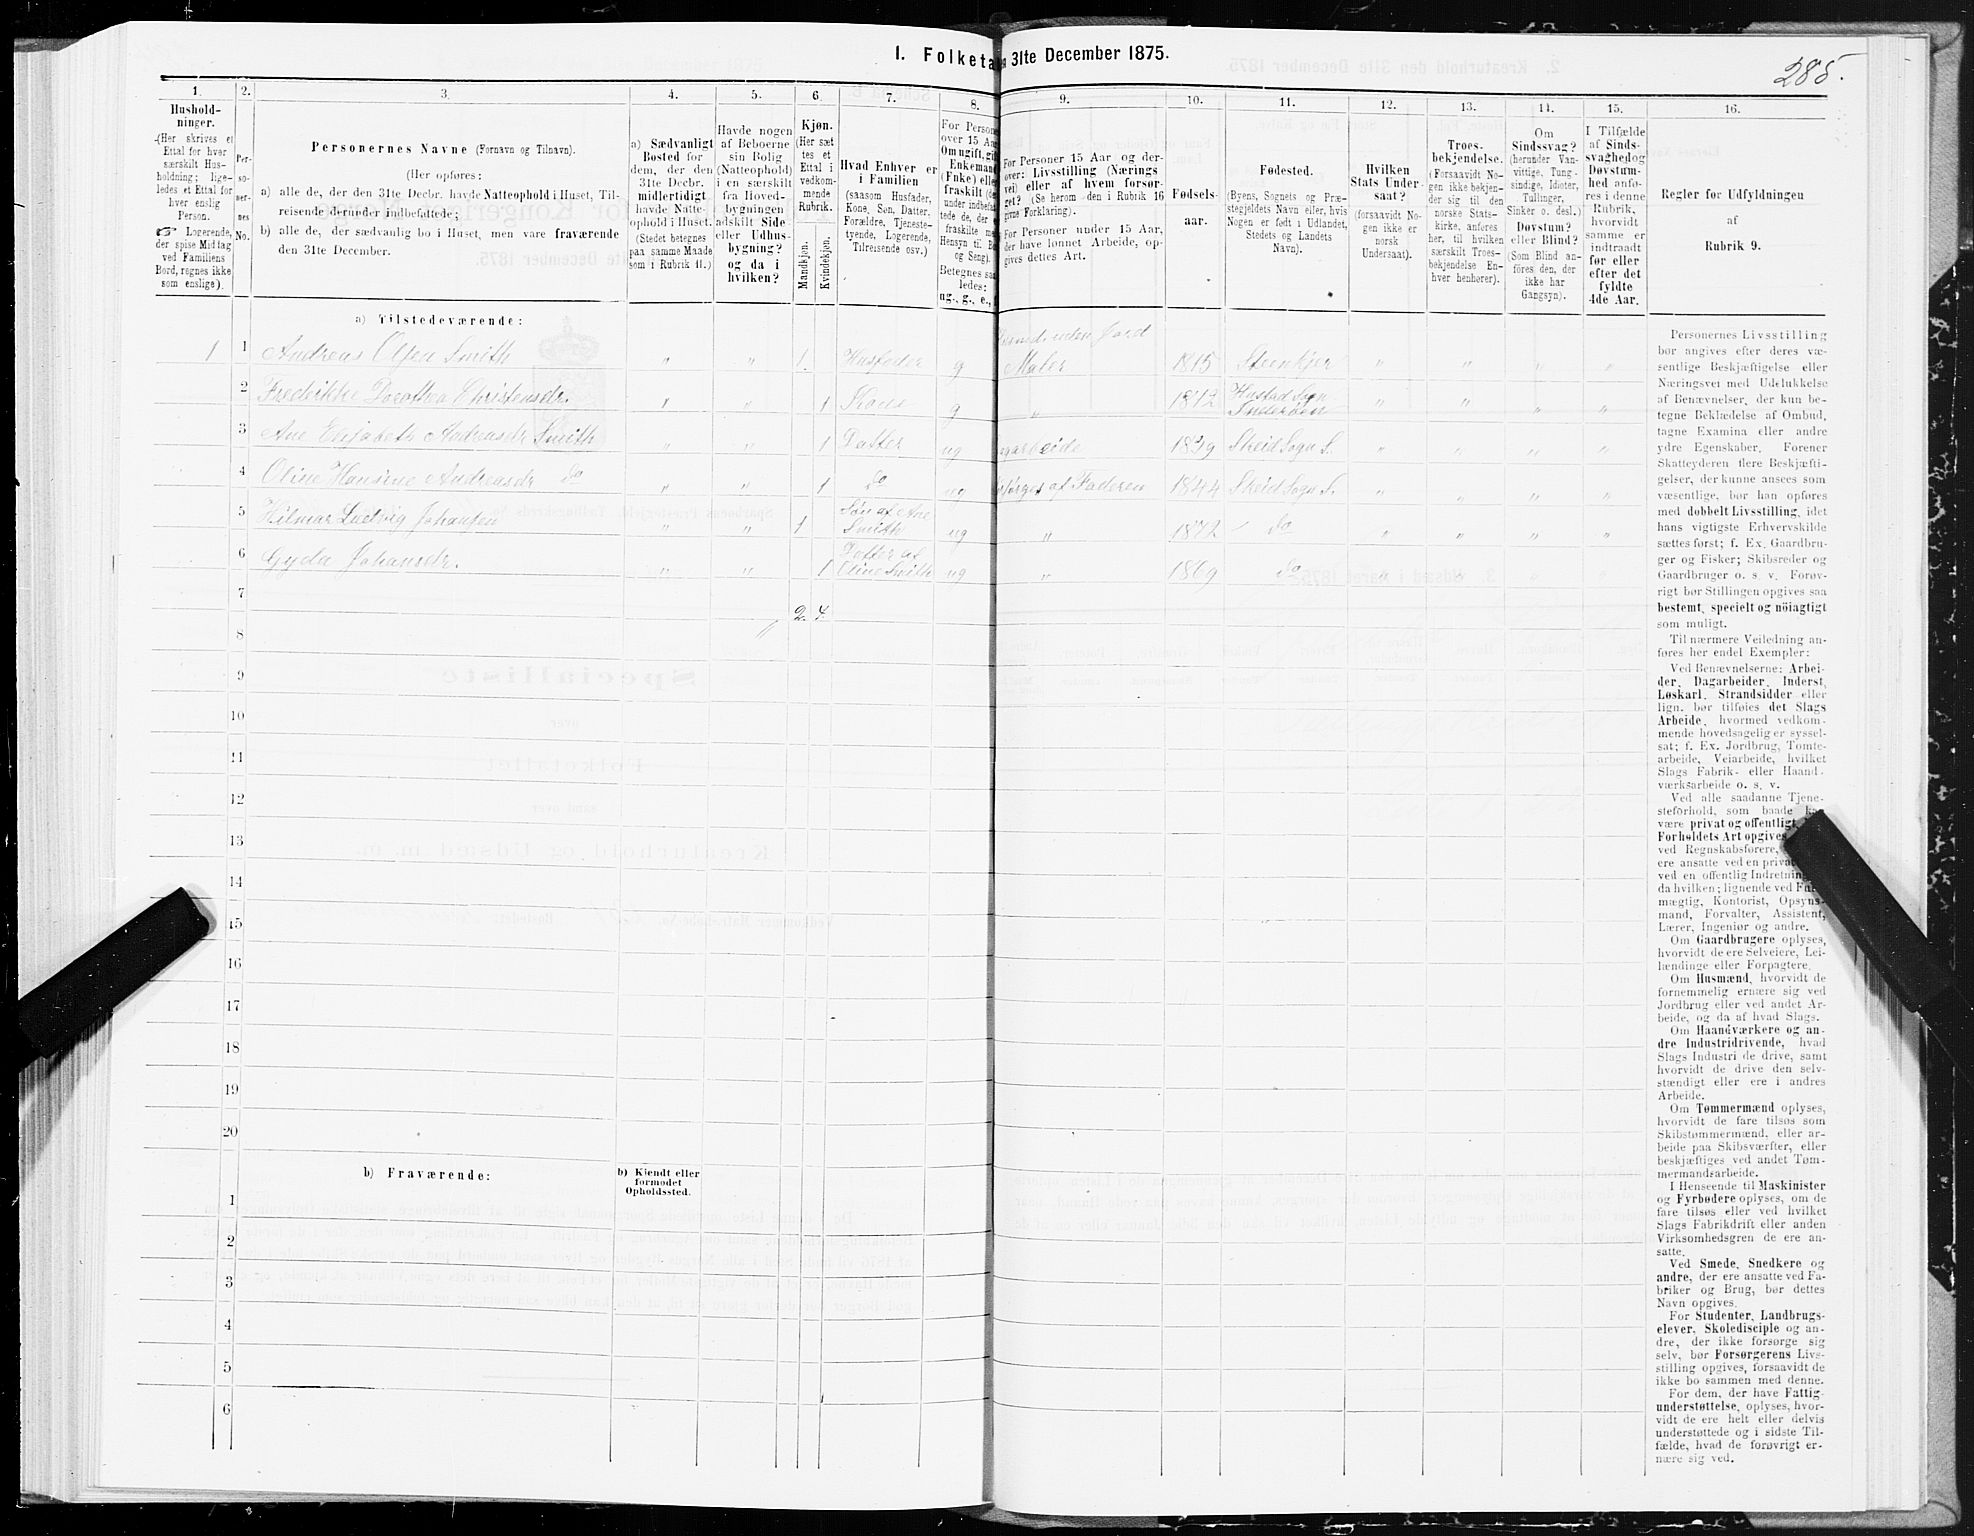 285.
I. Folketa
31te December 1875.
1.
2.
3.
4.
5.
6.
7.
8.
9.
10.
11.
12.
13.
14.
15.
16.
Hushold-
ninger.
(Her skrives et
Ettal for hver
særskilt Hus-
holdning; lige-
ledes et Ettal for
hver enslig
Person.
☞ Logerende,
der spise Middag
ved Familiens
Bord, regnes ikke
som enslige).
Per-
so-
ner-
nes
No.
Personernes Navne (Fornavn og Tilnavn).
(Her opføres:
a) alle de, der den 31te Decbr. havde Natteophold i Huset, Til-
reisende derunder indbefattede;
b) alle de, der sædvanlig bo i Huset, men vare fraværende
den 31te December.
a) Sædvanligt
Bosted for
dem, der den
31te Decbr.
midlertidigt
havde Natte-
ophold i Huset.
(Stedet betegnes
paa samme Maade
som i Rubrik 11.)
Havde nogen
af Beboerne
sin Bolig
(Natteophold)
i en særskilt
fra Hoved-
bygningen
adskilt Side-
eller Udhus-
bygning?
og da i
hvilken?
Kjøn.
(Her sæt
tes et
Ettal i
vedkom-
mende
Rubrik.
Mandkjøn.
Kvindekjøn.
Hvad Enhver er
i Familien
(saasom Husfader,
Kone, Søn, Datter,
Forældre, Tjeneste-
tyende, Logerende,
Tilreisende osv.)
For Persone
over 15 Aar
Om ugift, gif
Enkemand
(Enke) elle
fraskilt
under indbefat
tede de, der e
fraskilte me
Hensyn til B
og Seng).
Betegnes saa
ledes:
ug., g., e.,
For Personer 15 Aar og der-
over: Livsstilling (Nærings
vei) eller af hvem forsør-
get? (Se herom den i Rubrik 16
givne Forklaring).
For Personer under 15 Aar,
der have lønnet Arbeide, op-
gives dettes Art.
Fødsels-
aar.
Fødested.
(Byens, Sognets og Præ-
stegjeldets Navn eller, hvis
Nogen er født i Udlandet,
Stedets og Landets
Navn).
Hvilken
Stats Under-
saat?
(forsaavidt No-
gen ikke er
norsk
Undersaat).
Troes-
bekjendelse.
(Forsaavidt No-
gen ikke bekjen-
der sig til den
norske Stats-
kirke, anføres
her, til hvilken
særskilt Troes-
bekjendelse En-
hver henhører).
Om
Sindssvag?
(herunder Van-
vittige, Tung-
sindige, Idioter,
Tullinger,
Sinker o. desl.)
Døvstum?
eller Blind?
(Som Blind an-
føres den, der
ikke har
Gangsyn).
I Tilfælde
af Sinds-
svaghed og
Døvstum-
hed anfø-
res i denne
Rubrik,
hvorvidt
samme er
indtraadt
før eller
efter det
fyldte
4de Aar.
Regler for Udfyldningen
af
Rubrik 9.
a) Tilstedeværende:
1 1 Andreas Olsen Smith " " 1. Husfader g Huusmd. uden Jord Maler 1815 Steenkjer " " " "
2 Frederikke Dorothea Christensdr. " " 1 Kone g " 1812 Hustad Sogn Inderøen " " " "
3 Ane Elisabeth Andreasdr Smith " " 1 Datter ug arbeide 1839 Skeid Sogn S. " " " "
4 Oline Hansine Andreasdr do " " 1 do ug forsørges af Faderen 1844 Skeid Sogn S. " " " "
5 Hilmar Ludvig Johansen " " 1 Søn af Ane Smith ug " 1872 do " " " "
6 Gyda Johansdr. " " 1 Datter af Oline Smith ug " 1869 do " " " "
7 2. 4.
8
9
10
11
12
13
14
15
16
17
18
19
20
b) Fraværende:
b) Kjendt eller
formodet
Opholdssted.
1
2
3
4
5
6
Personernes Livsstilling
bør angives efter deres væ-
sentlige Beskjæftigelse eller
Næringsvei med Udelukkelse
af Benævnelser, der kun be-
tegne Beklædelse af Ombud,
tagne Examina eller andre
ydre Egenskaber. Forener
Skatteyderen flere Beskjæfti-
gelser, der kunne ansees som
væsentlige, bør han opføres
med dobbelt Livsstilling, idet
hans vigtigste Erhvervskilde
sættes først; f. Ex. Gaardbru-
ger og Fisker; Skibsreder og
Gaardbruger o. s. v. Forøv-
rigt bør Stillingen opgives saa
bestemt, specielt og nöiagtigt
som muligt.
Til nærmere Veiledning an-
føres her endel Exempler:
Ved Benævnelserne: Arbei-
der, Dagarbeider, Inderst,
Løskarl, Strandsidder eller
lign. bør tilføies det Slags
Arbeide, hvormed vedkom-
mende hovedsagelig er syssel-
sat; f. Ex. Jordbrug, Tomte-
arbeide, Veiarbeide, hvilket
Slags Fabrik- eller Haand-
værksarbeide o. s. v.
Ved alle saadanne Tjene-
steforhold, som baade ka
være privat og offentligt,
Forholdets Art opgives,
ved Regnskabsførere,
ere ansatte ved en privat
ved en offentlig Indretning,
da hvilken; lignende ved Ful-
mægtig, Kontorist, Opsyns-
mand, Forvalter, Assistent,
Lærer, Ingeniør og andre.
Om Gaardbrugere oplyses,
hvorvidt de ere Selveiere, Lei-
lændinge eller Forpagtere.
Om Husmænd, hvorvidt de
fornemmelig ernære sig ved
Jordbrug eller ved andet Ar-
beide, og da af hvad Slags.
Om Haandværkere og an-
dre Industridrivende, hvad
Slags Industri de drive, samt
hvorvidt de drive den selv-
stændigt eller ere i andres
Arbeide.
Om Tømmermænd oplyses,
hvorvidt de fare tilsøs som
Skibstømmermænd, eller ar-
beide paa Skibsværfter, eller
beskjæftiges ved andet Tøm-
mermandsarbeide.
I Henseende til Maskinister
og Fyrbødere oplyses, om de
fare tilsøs eller ved hvilket
Slags Fabrikdrift eller anden
Virksomhedsgren de ere an-
satte.
Ved Smede, Snedkere og
andre, der ere ansatte ved Fa-
briker og Brug, bør dettes
Navn opgives.
For Studenter, Landbrugs-
elever, Skoledisciple og an-
dre, der ikke forsørge sig
selv, bør Forsørgerens Livs-
stilling opgives, forsaavidt de
ikke bo sammen med denne.
For dem, der have Fattig-
understøttelse, oplyses, hvor-
vidt de ere helt eller delvis
understøttede og i sidste Til-
fælde, hvad de forøvrigt er-
nære sig ved.